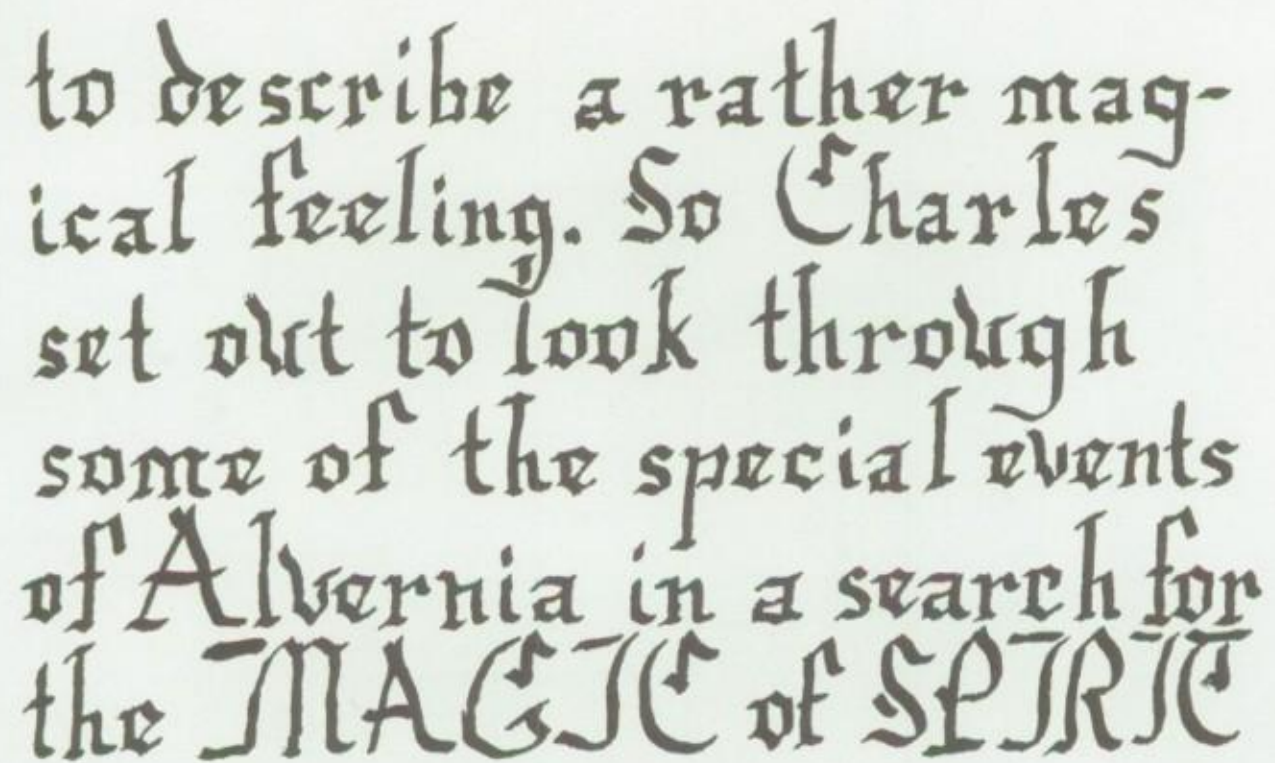 to describe a rather mag-
ical feeling. So Charles
set out to look through
some of the special events
of Alvernia in a search for
the MAGIC of SPIRIT